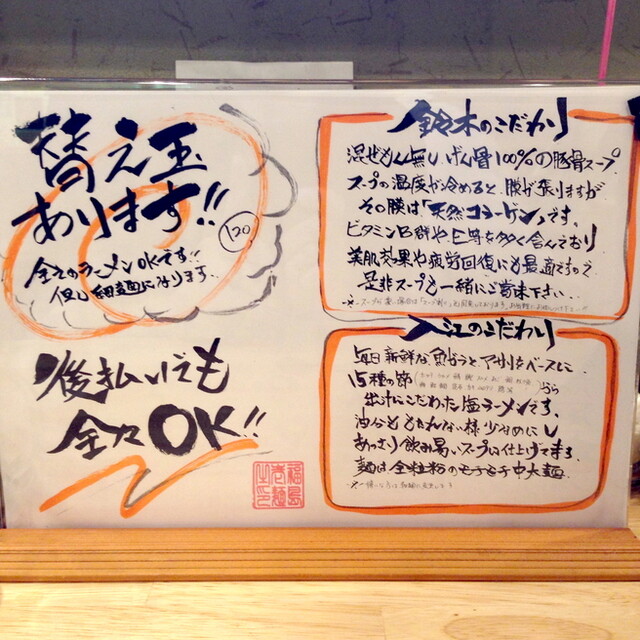 替え玉
あります!!
120
全てのラーメンOKです!!
但し細麺になります。
後払いでも
全々OK!!
鈴木のこだわり
混ぜもん無し、げん骨100%の豚骨スープ
スープの温度が冷めると、膜が張りますが
その膜は「天然コラーゲン」です。
ビタミンB群やE等を多く含んでおり
美肌効果や疲労回復にも最適ですので
是非スープも一緒にご賞味下さい…
入江のこだわり
毎日新鮮な魚あらとアサリをベースに
15種の節
から
出汁にこだわった塩ラーメンです。
油分ももたれない様少なめにし
あっさり飲み易いスープに仕上げてます。
麺は全粒粉のモチモチ中太麺
福島
壱麺